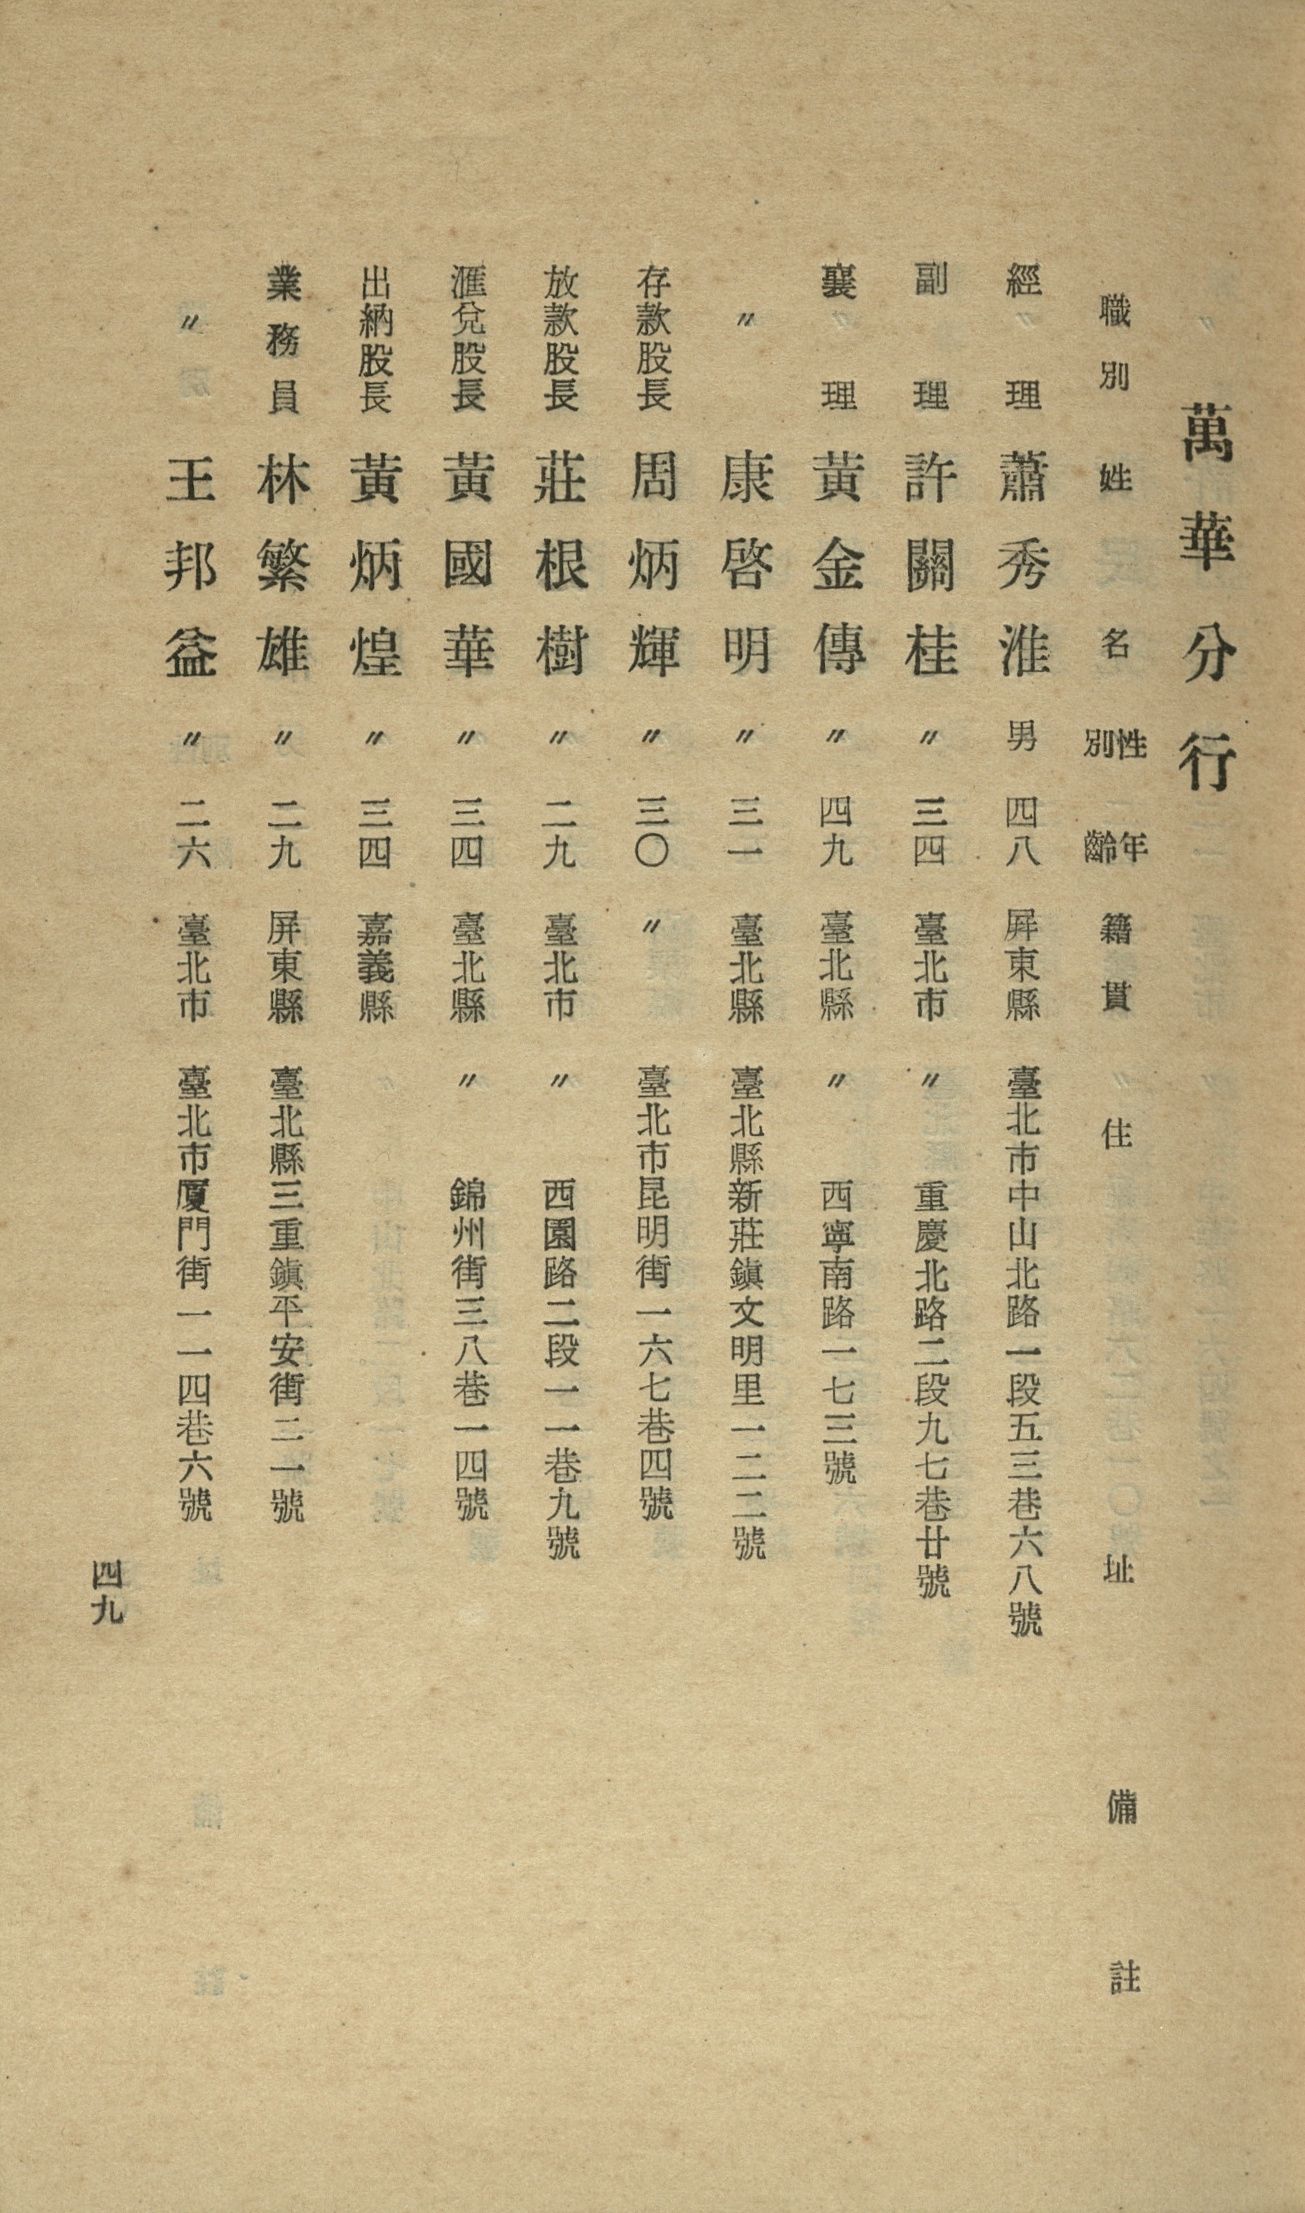 萬華分行
職別 姓名 性別 年齡 籍貫 住址 備註
經理 蕭秀淮 男 四八 屏東縣 臺北市中山北路一段五三巷六八號
副理 許關桂 〃 三四 臺北市 〃 重慶北路二段九七巷廿號
襄理 黃金傳 〃 四九 臺北縣 〃 西寧南路一七三號
〃 康啓明 〃 三一 臺北縣 臺北縣新莊鎭文明里一二二號
存款股長 周炳輝 〃 三〇 〃 臺北市昆明街一六七巷四號
放款股長 莊根樹 〃 二九 臺北市 〃 西園路二段一一巷九號
滙兌股長 黃國華 〃 三四 臺北縣 〃 錦州街三八巷一四號
出納股長 黃炳煌 〃 三四 嘉義縣
業務員 林繁雄 〃 二九 屏東縣 臺北縣三重鎭平安街二一號
〃 王邦益 〃 二六 臺北市 臺北市厦門街一一四巷六號
四九